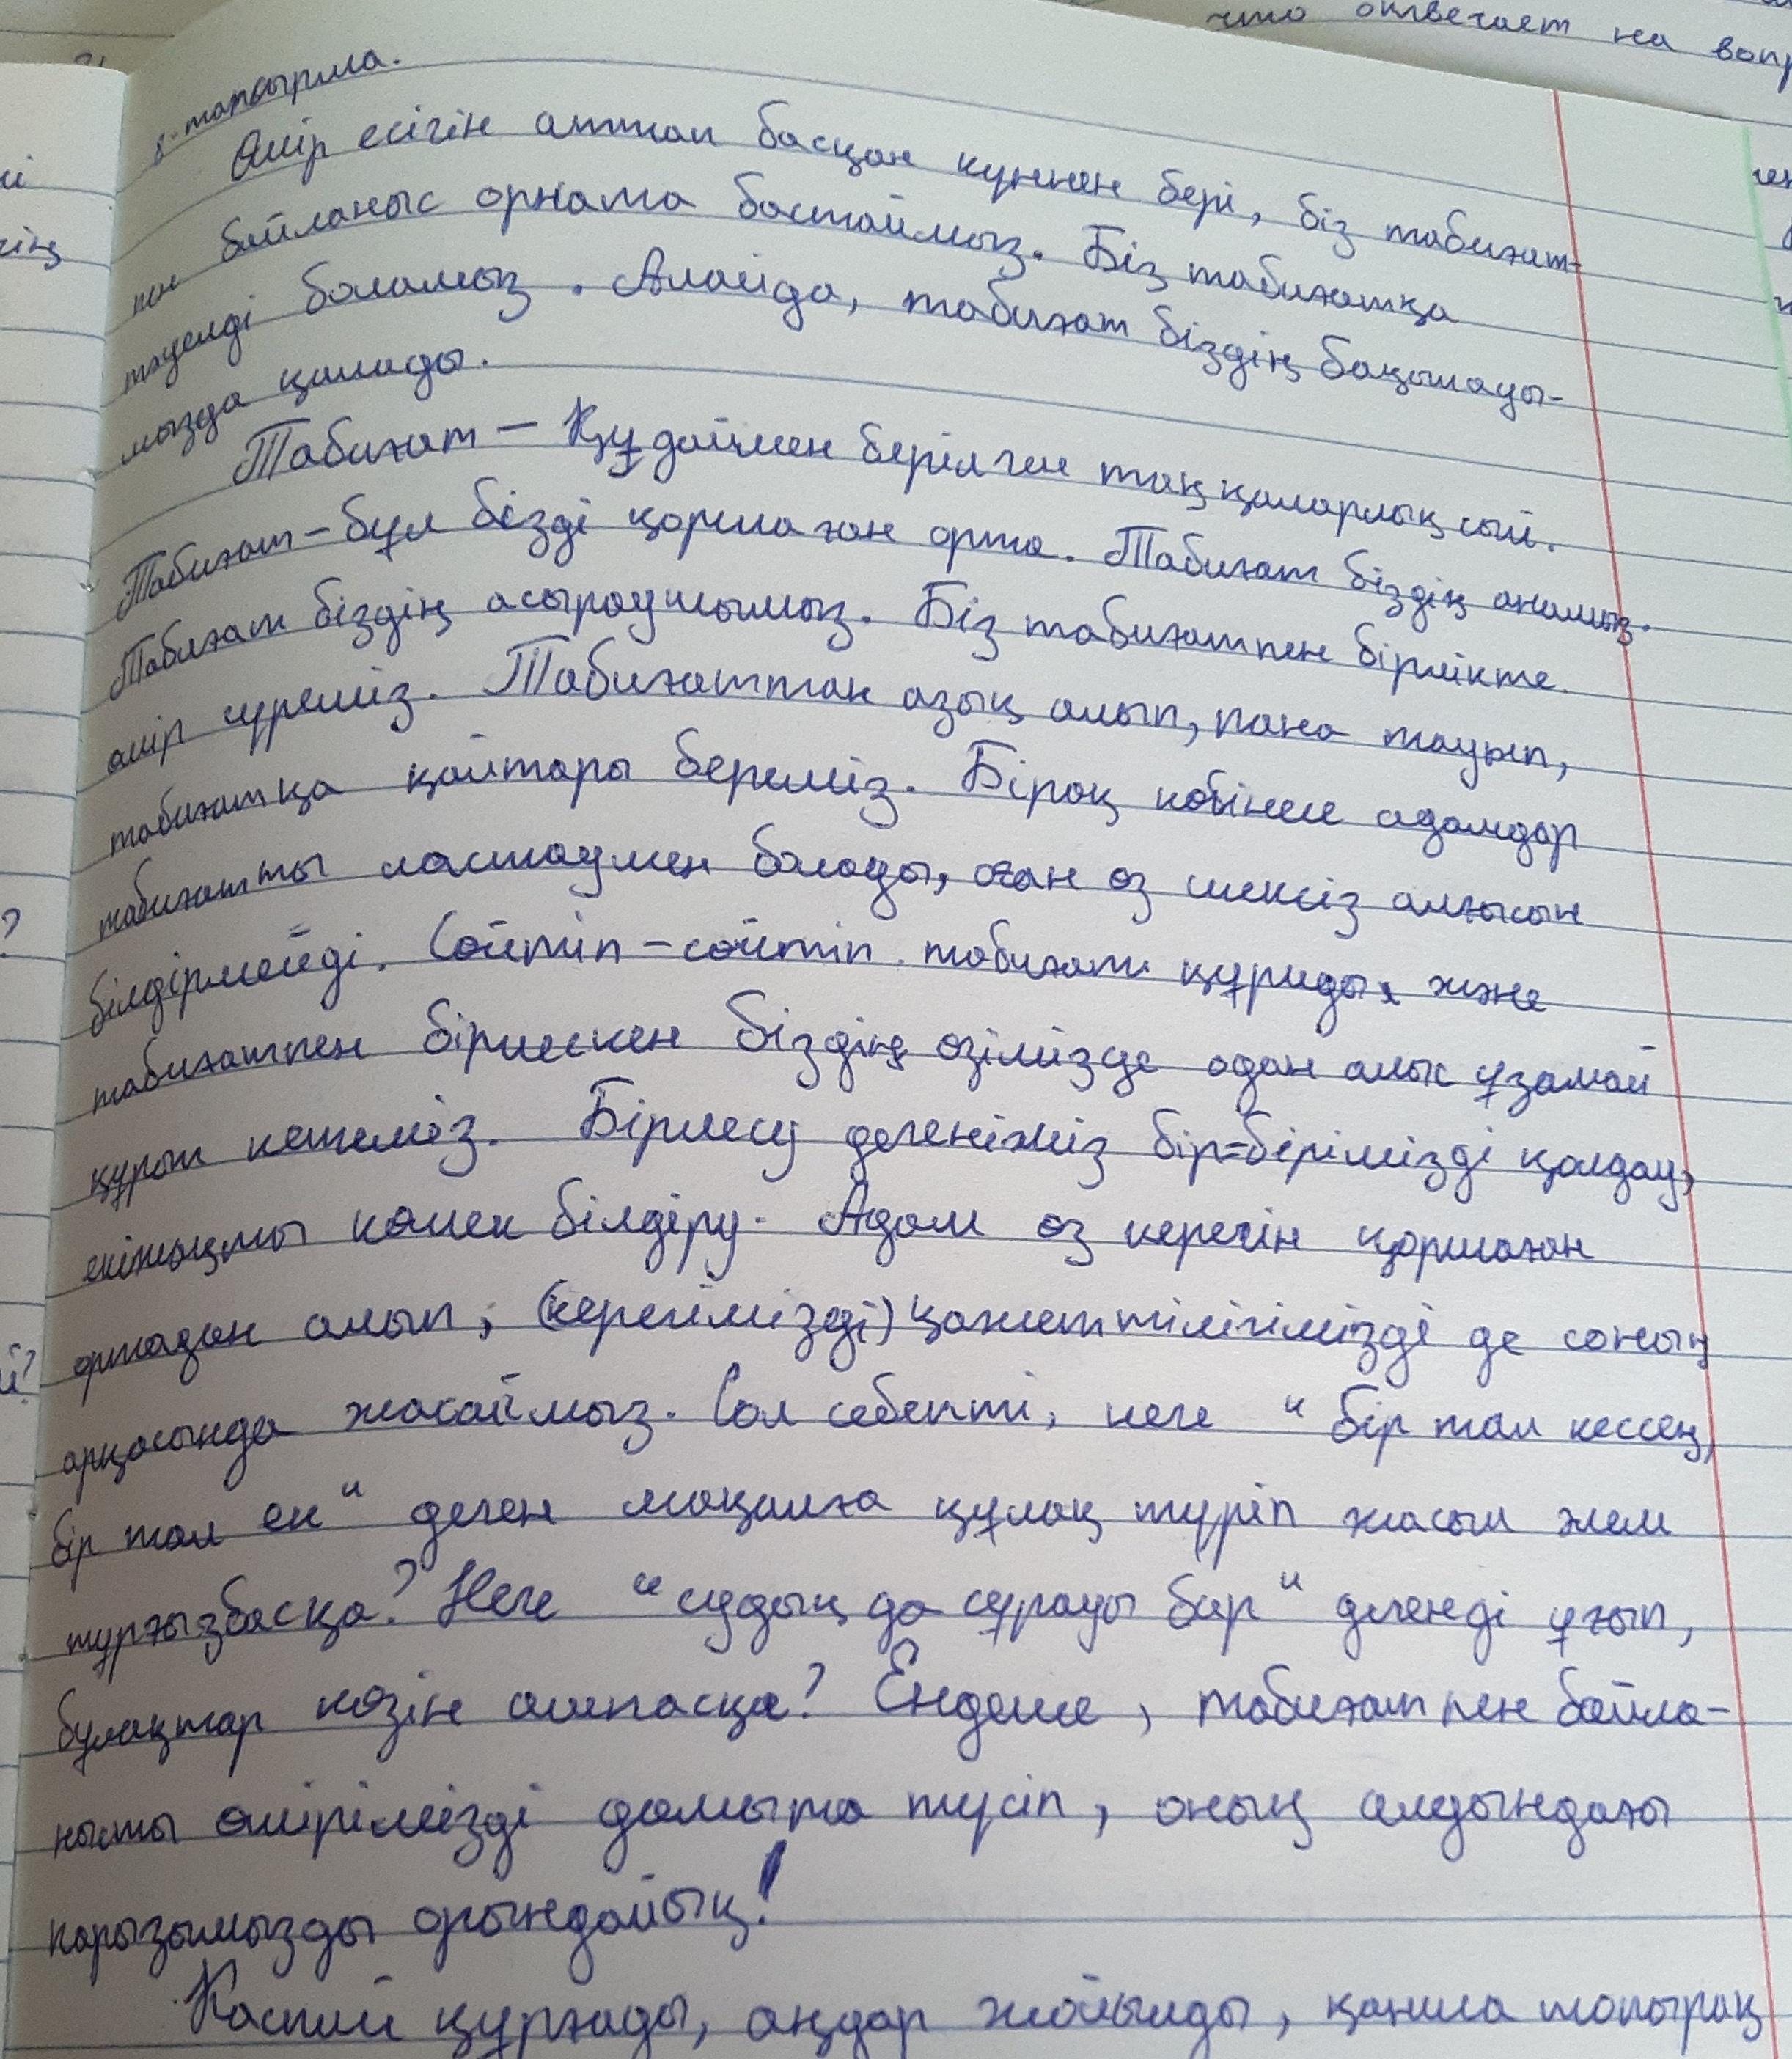 что отвечает на вопр
8-тапсырма.
Өмір есігін аттап басқан күннен бері, біз табиғат-
пен байланыс орната бастаймыз. Біз табиғатқа
тәуелді боламыз. Алайда, табиғат біздің бақылауы-
мызда қалады.
Табиғат – Құдаймен берілген таңқаларлық сый.
Табиғат – бұл бізді қоршаған орта. Табиғат біздің анамыз.
Табиғат біздің асыраушымыз. Біз табиғатпен бірлікте
өмір сүреміз. Табиғаттан азық алып, пана тауып,
табиғатқа қайтары береміз. Бірақ көбінесе адамдар
табиғатты ластаумен болады, оған өз шексіз алғысын
білдірмейді. Сөйтіп-сөйтіп табиғат құриды, және
табиғатпен бірлескен біздің өзімізде одан алыс ұзамай
құрып кетеміз. Бірлесу дегеніміз бір-бірімізді қолдау,
екіжақты көмек білдіру. Адам өз керегін қоршаған
ортадан алып, (керегімізді) қажеттілігімізді де соның
арқасында жасаймыз. Сол себепті, неге "бір тал кессең,
бір тал ек" деген мақалға құлақ түріп жасыл әлем
тұрғызбасқа? Неге "судың да сұрауы бар" дегенді ұғып,
бұлақтар көзін ашпасқа? Ендеше, табиғатпен байла-
нысты өмірімізді дамыта түсіп, оның алдындағы
парызымызды орындайық!
Каспий құрғады, аңдар жойылды, қанша топырақ